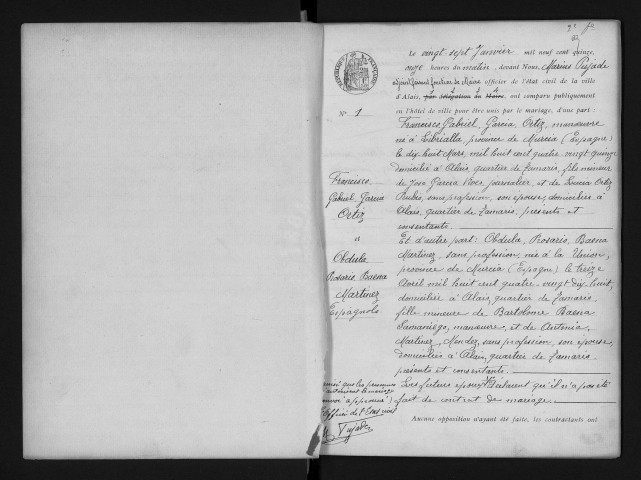 Le vingt sept Janvier mil neuf cent quinze,
onze heures du matin, devant Nous, Marius Pujade
officier de l'état civil de la ville
d'Alais, par délégation du Maire, ont comparu publiquement
en l'hôtel de ville pour être unis par le mariage, d'une part :
N° 1
Francisco, Gabriel, Garcia Ortiz, manœuvre
né à Librialla, province de Murcia (Espagne)
le dix huit Mars, mil huit cent quatre vingt quinze
domicilié à Alais, quartier de Tamaris, fils mineur
de Jose Garcia Vives journalier, et de Ortiz
Rubio, sans profession, son épouse, domiciliés à
Alais, quartier de Tamaris, présents et
consentants.
Francisco
Gabriel Garcia
Ortiz
et
Obdula
Rosario Baena
Martinez
Espagnols
Et d'autre part : Obdula, Rosario, Baena
Martinez, sans profession, née à la Union,
province de Murcia (Espagne) le treize
Avril mil huit cent quatre vingt dix huit,
domiciliée à Alais, quartier de Tamaris,
fille mineure de Bartolome Baena
Samaniego, manœuvre, et de Antonia,
Martinez, Mendez, sans profession, son épouse,
domiciliés à Alais, quartier de Tamaris
présents et consentants.
Les futurs époux déclarent qu'il n'a pas été
fait de contrat de mariage.
ainsi que les personnes
autorisant le mariage
(renvoi approuvé)
L'officier de l'État civil
M. Pujade
Aucune opposition n'ayant été faite, les contractants ont